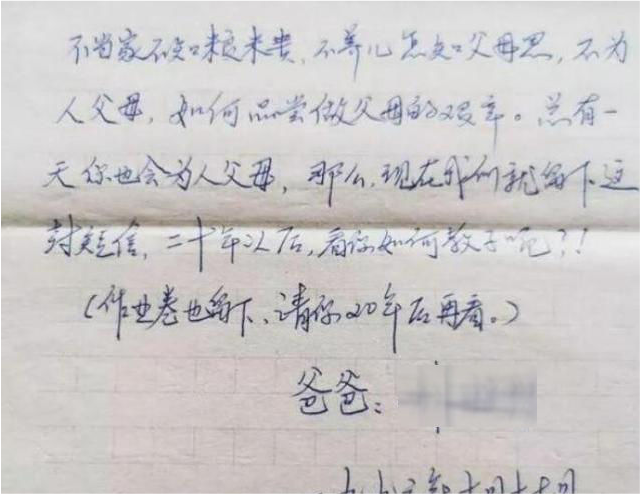 不当家不知粮米贵，不养儿怎知父母恩，不为
人父母，如何品尝做父母的艰辛。总有一
天你也会为人父母，那么，现在我们就留下这
封短信，二十年以后，看你如何教子呢？！
（作业卷也留下、请你20年后再看。）
爸爸：
年十月十